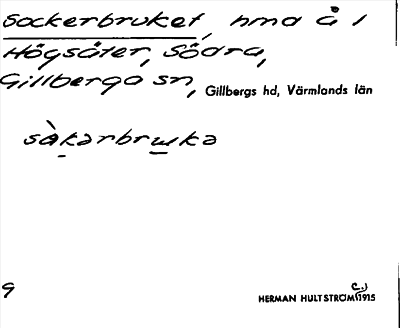 Sockerbruket, hmd å 1
Högsäter, Södra,
Gillberga sn, Gillbergs hd, Värmlands län
sàkərbrɯkə
9
HERMAN HULTSTRÖM (c.) 1915